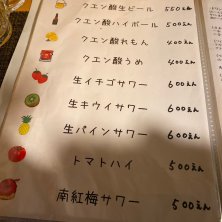 クエン酸生ビール 550えん
クエン酸ハイボール 500えん
クエン酸れもん 400えん
クエン酸うめ 400えん
生イチゴサワー 600えん
生キウイサワー 600えん
生パインサワー 600えん
トマトハイ 500えん
南紅梅サワー 500えん